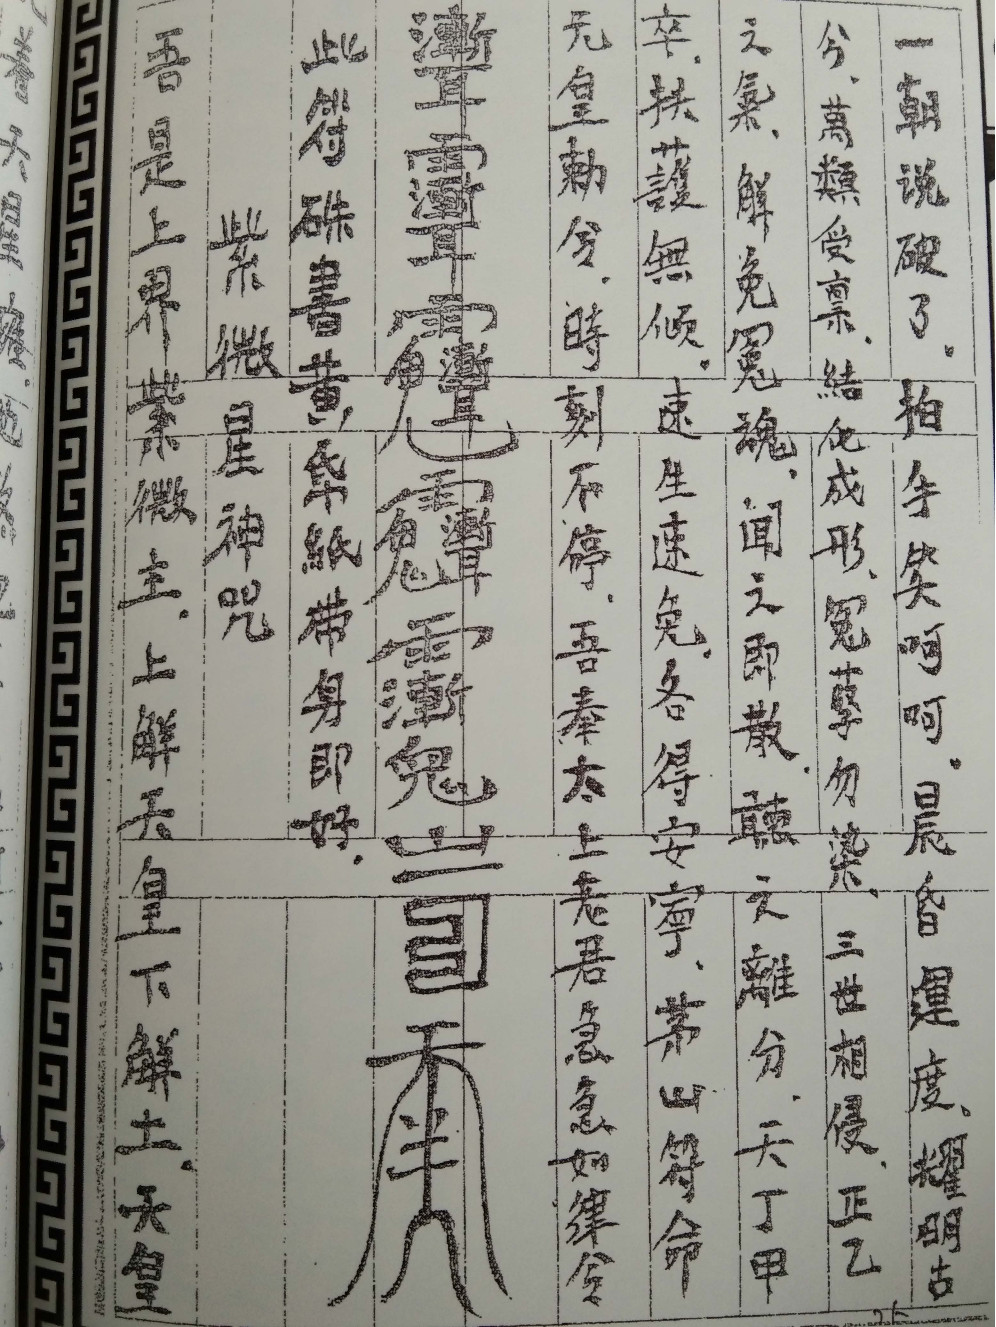 一朝说破了．拍手笑呵呵。晨昏運度、耀明古
今、萬類受禀、結化成形、冤孽勿染、三世相侵、正乙
之氣、解免冤魂、聞之即散．聽之離分．天丁甲
卒、扶護無傾．速生速免．各得安寧、茅山符命
元皇勅令．時刻不停．吾奉太上老君急急如律令
此符硃書黄帋紙带身即好．
紫微星神咒
吾是上界紫微主．上解天皇下解土．天皇